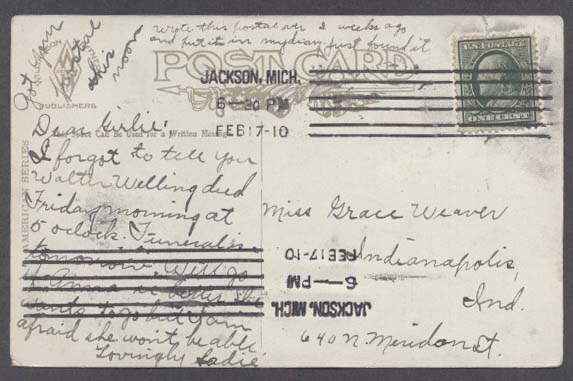 Wrote this postal over 2 weeks ago
and put it in my diary just found it
Got your
postal
this
noon
PUBLISHERS
POST CARD
JACKSON, MICH.
6—30 PM
FEB 17-10
U.S. POSTAGE
ONE CENT
AMERICAN SERIES
This Space Can Be Used for a Written Message
Dear Girlie:
I forgot to tell you
Walter Welling died
Friday morning at
5 oclock. Funeral is
tomorrow. Will go
if Anna is better she
wants to go but I am
afraid she won't be able
Lovingly Sadie
Miss Grace Weaver
Indianapolis,
Ind.
640 N Meridon St.
JACKSON, MICH.
6—PM
FEB 17-10